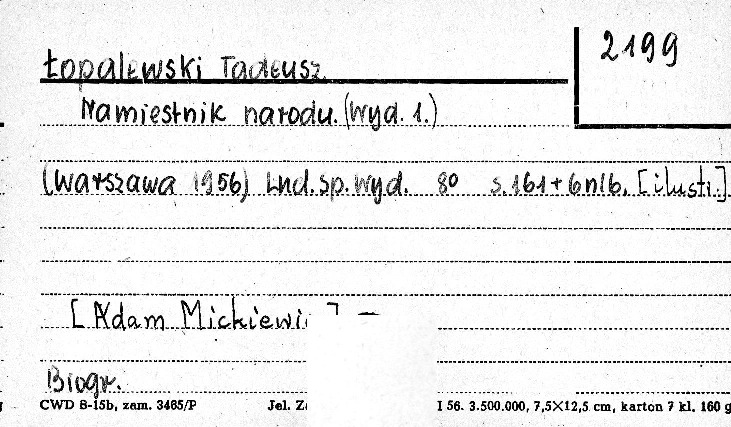 2199
Łopalewski Tadeusz
Namiestnik narodu. (Wyd. 1.)
(Warszawa 1956) Lud. sp. wyd. 8° s. 161 + 6 nlb. [ilustr.]
[Adam Mickiewi ] —
Biogr.
CWD 8-15b, zam. 3465/P Jel. Z I 56. 3.500.000, 7,5×12,5 cm, karton 7 kl. 160 g